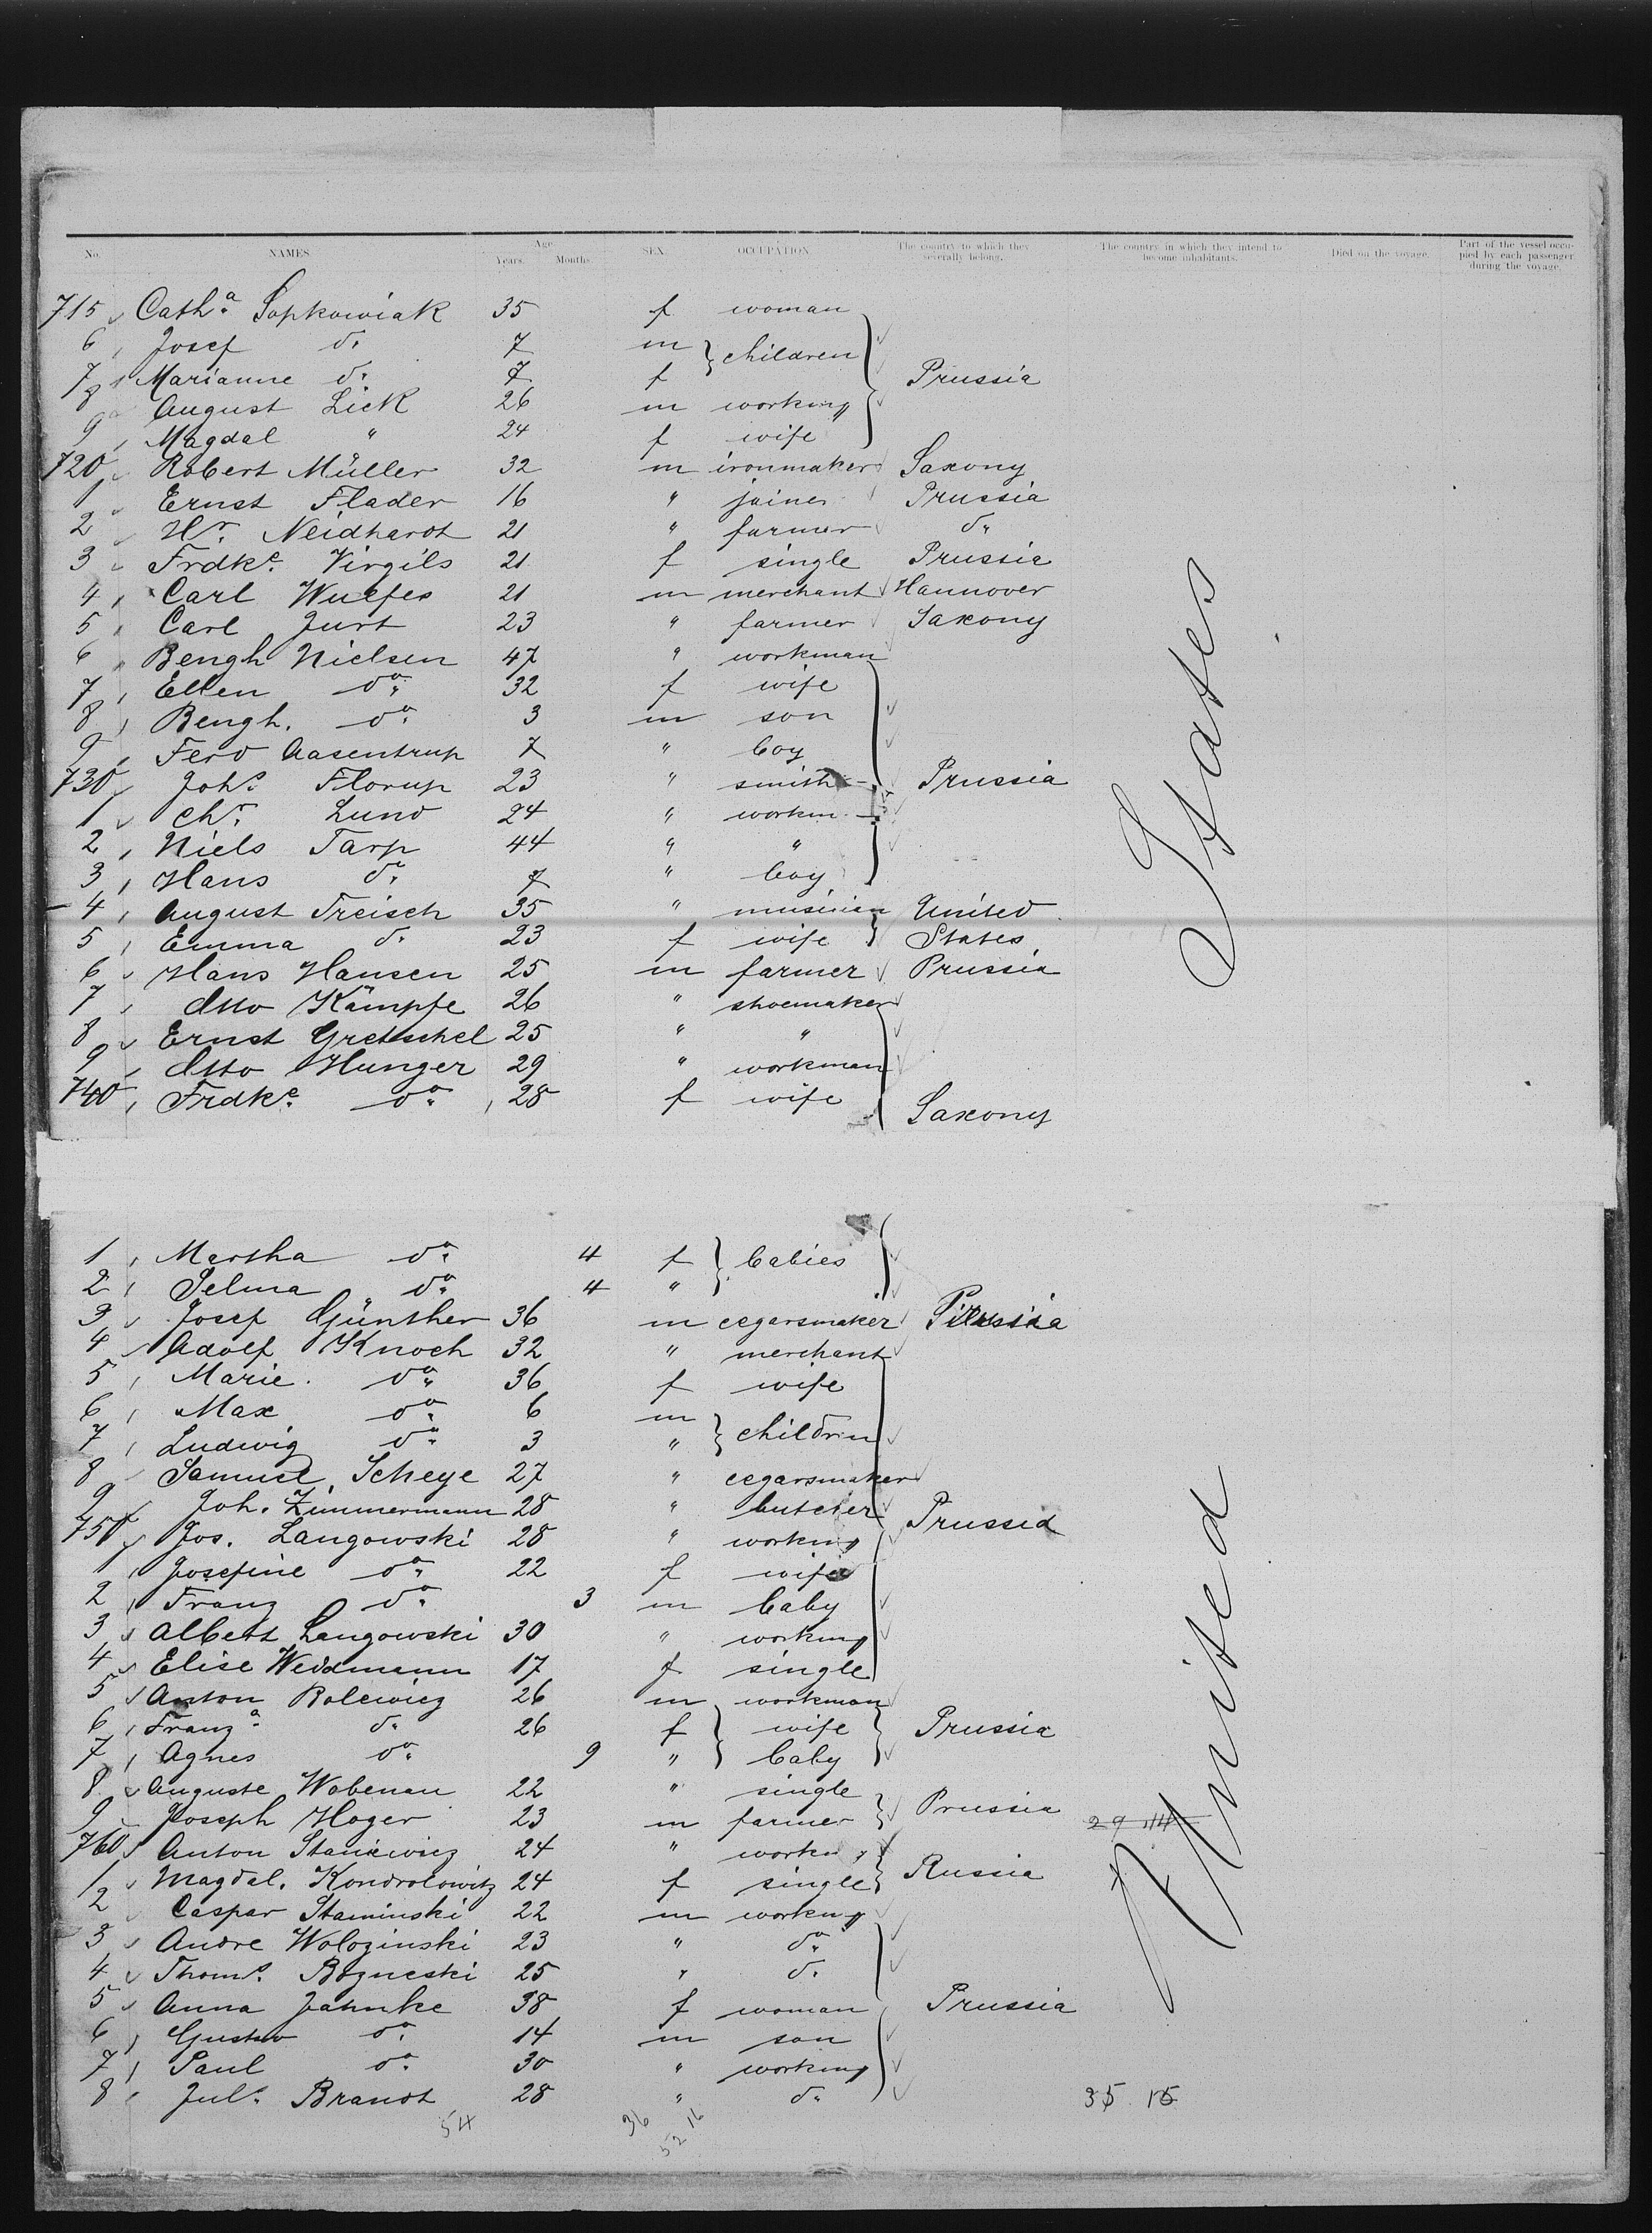 No. NAMES Age. Years. Months. SEX. OCCUPATION The country to which they severally belong. The country in which they intend to become inhabitants. Died on the voyage. Part of the vessel occupied by each passenger during the voyage.
715 Cath.a Sopkowiak 35 f woman
6 Josef do. 7 m children
7 Marianne do. 7 f Prussia
8 August Lick 26 m working
9 Magdal " 24 f wife
720 Robert Müller 32 m ironmaker Saxony
1 Ernst Flader 16 " joiner Prussia
2 Hr. Neidhardt 21 " farmer do.
3 Frdke. Virgils 21 f single Prussia
4 Carl Wulfes 21 m merchant Hannover
5 Carl Jurt 23 " farmer Saxony
6 Bengh Nielsen 47 " workman
7 Ellen do. 32 f wife
8 Bengh. do. 3 m son
9 Ferd Aasentrup 7 " boy
730 Johs. Florup 23 " smith Prussia
1 Chr. Lund 24 " workm
2 Niels Tarp 44 " "
3 Hans do. 7 " boy
4 August Treisch 35 " musician United
5 Emma do. 23 f wife States
6 Hans Hansen 25 m farmer Prussia
7 Otto Kämpfe 26 " shoemaker
8 Ernst Gretschel 25 " "
9 Otto Hunger 29 " workman
740 Frdke. do. 28 f wife Saxony
States
1 Martha do. 4 f babies
2 Selma do. 4 "
3 Josef Günther 36 m cegarsmaker Prussia
4 Adolf Knoch 32 " merchant
5 Marie do. 36 f wife
6 Max do. 6 m children
7 Ludwig do. 3 "
8 Samuel Scheye 27 " cegarsmaker
9 Joh. Zimmermann 28 " butcher Prussia
750 Jos. Langowski 28 " working
1 Josefine do. 22 f wife
2 Franz do. 3 m baby
3 Albert Langowski 30 " working
4 Elise Weidmann 17 f single
5 Anton Rolewicz 26 m workman
6 Franz.a do. 26 f wife Prussia
7 Agnes do. 9 " baby
8 Auguste Wobenau 22 " single
9 Joseph Hoger 23 m farmer Prussia 29 114
760 Anton Stankiewicz 24 " workn
1 Magdal. Kondrolowitz 24 f single Russia
2 Caspar Staminski 22 m working
3 Andre Wologinski 23 " do.
4 Thoms. Bogneski 25 " do.
5 Anna Jahnke 38 f woman Prussia
6 Gustav do. 14 m son
7 Paul do. 30 " working
8 Juls. Brandt 28 " do. 35 15
United
54 36 16
52